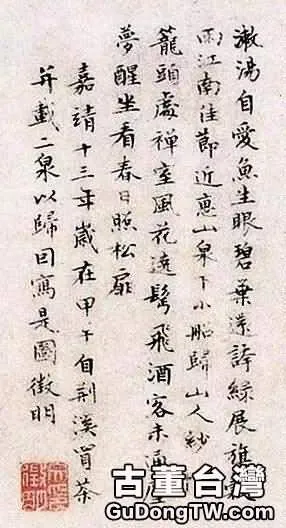 嫩湯自愛魚生眼碧葉還誇綠展旗
雨江南佳節近惠山泉下小船歸山人紗
籠頭處禪室風花遶鬢飛酒客未通
夢醒坐看春日照松扉
嘉靖十三年歲在甲午自荆溪買茶
并載二泉以歸因寫是圖徵明
古董台灣
GuDongTW.com